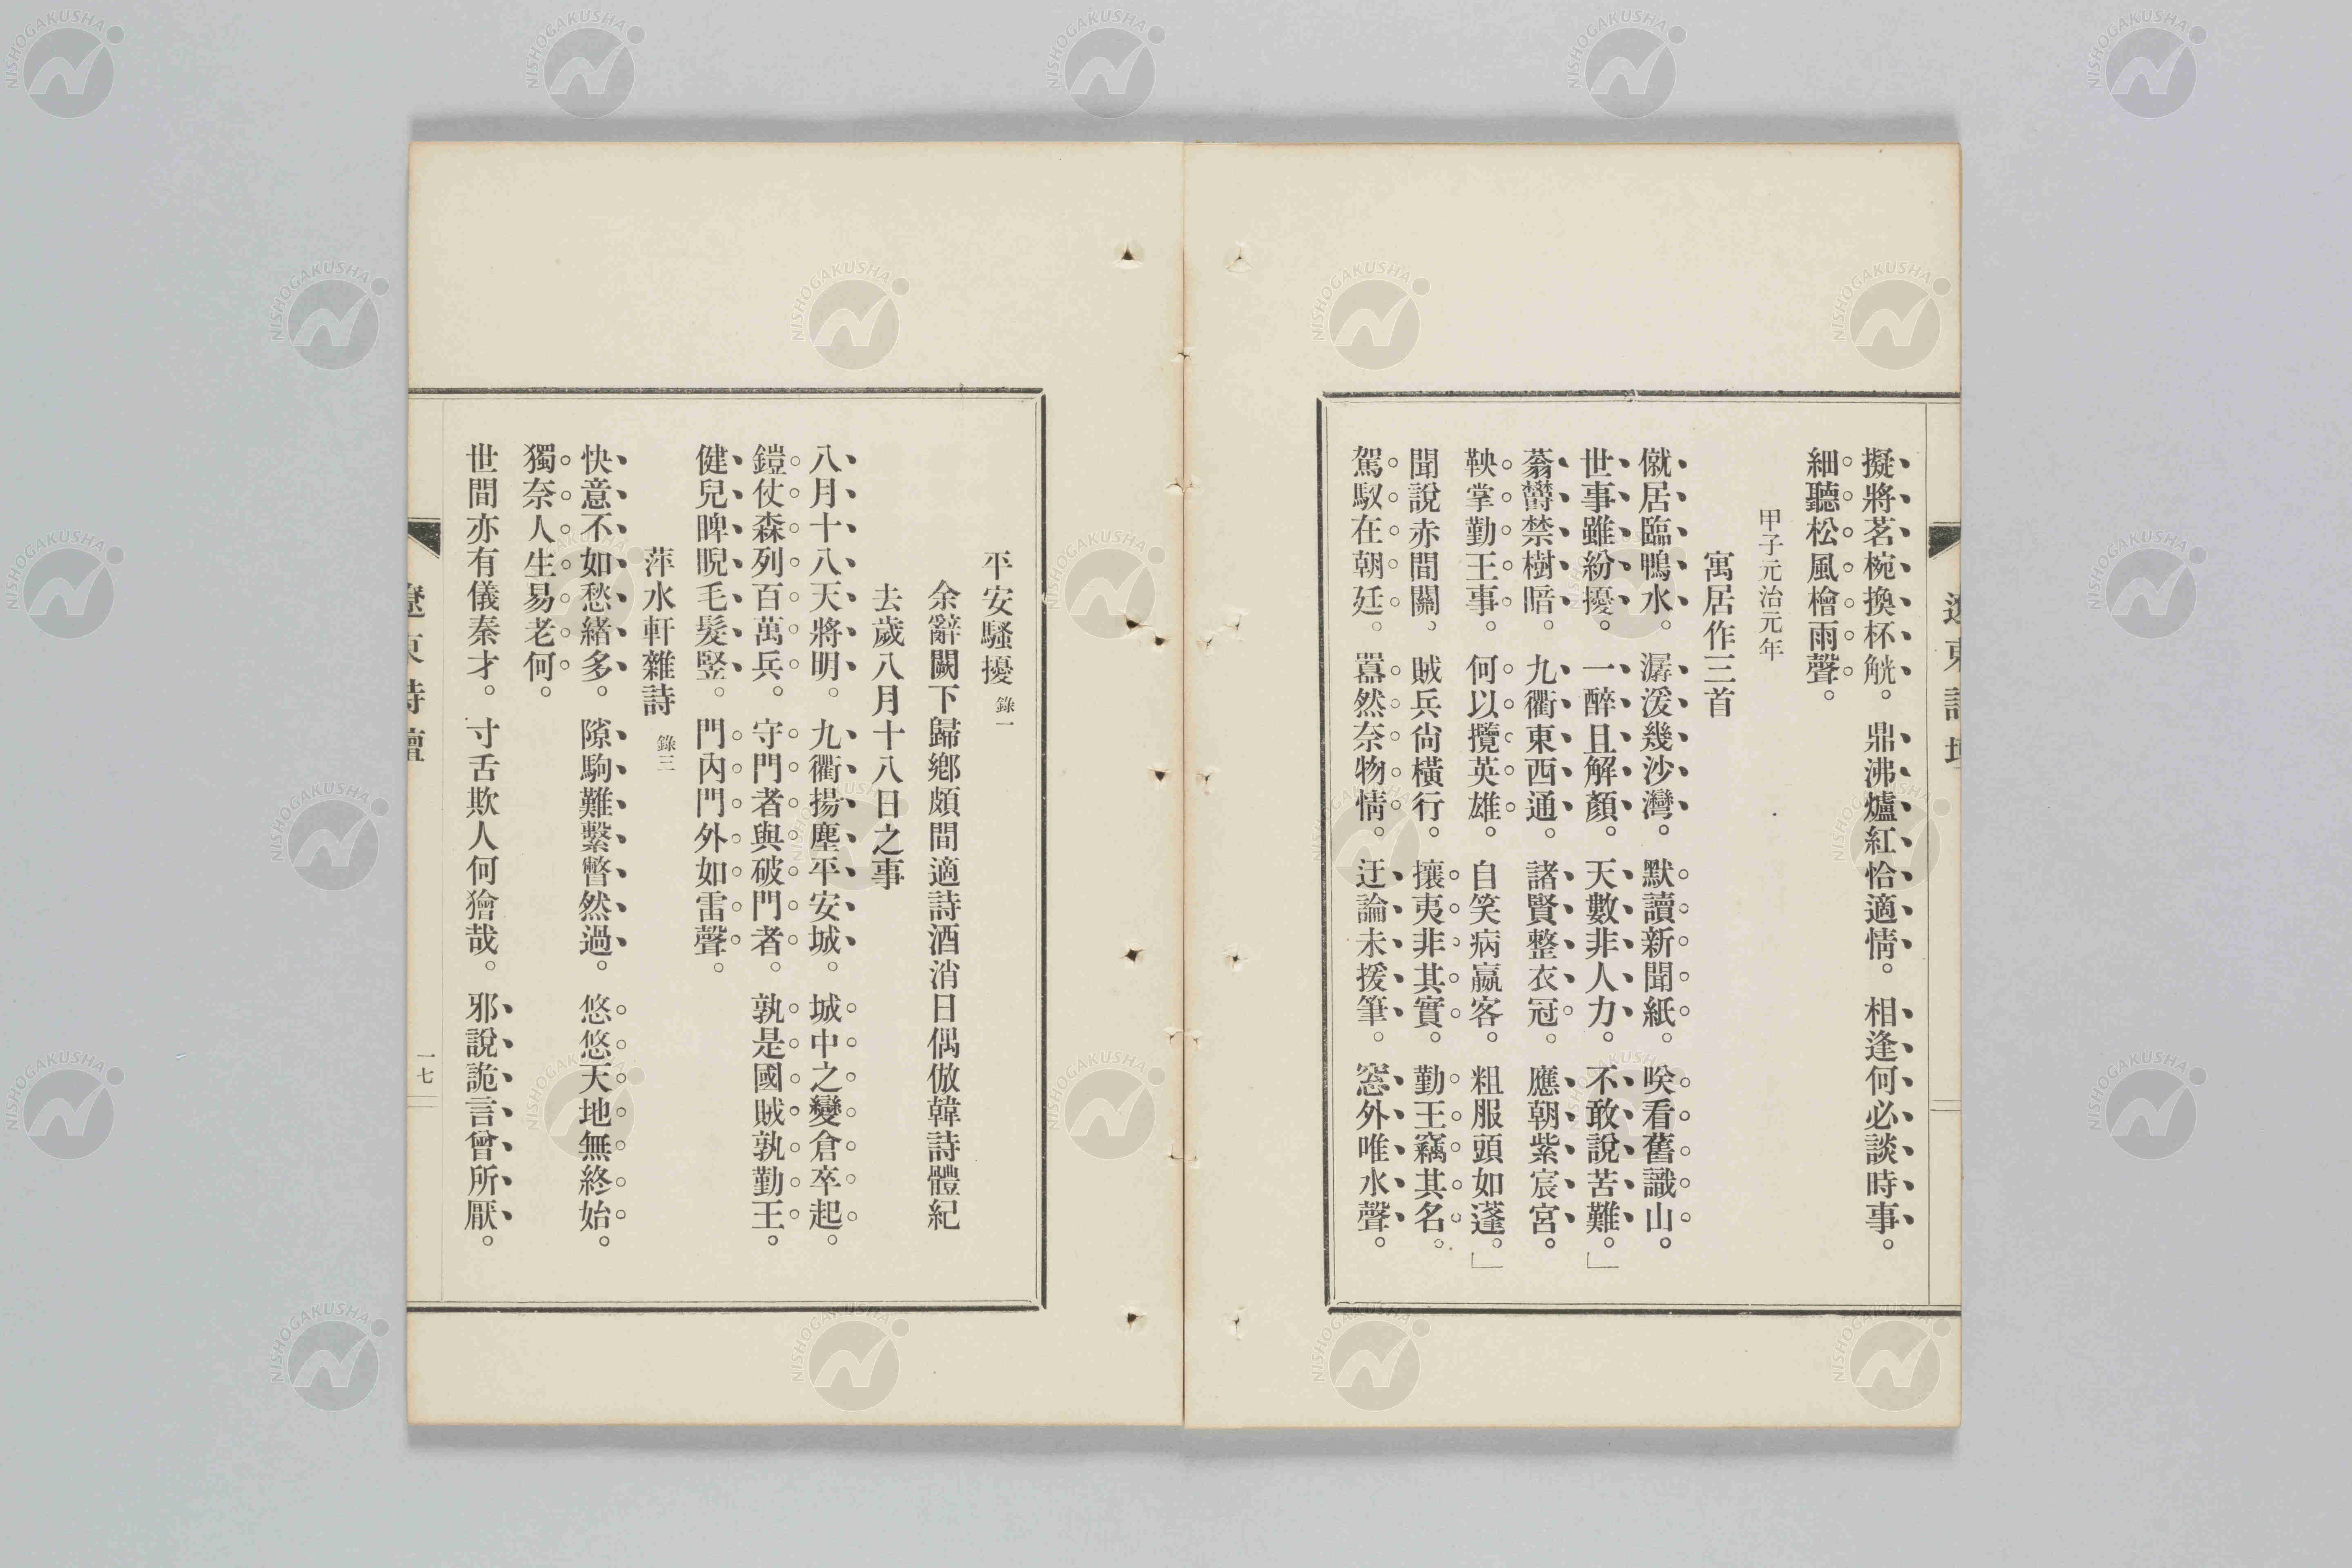 擬將茗椀換杯觥。鼎沸爐紅恰適情。相逢何必談時事。
細聽松風檜雨聲。
甲子元治元年
寓居作三首
僦居臨鴨水。潺湲幾沙灣。默讀新聞紙。咲看舊識山。
世事雖紛擾。一醉且解顏。天數非人力。不敢說苦難。」
蓊欝禁樹暗。九衢東西通。諸賢整衣冠。應朝紫宸宮。
鞅掌勤王事。何以攬英雄。自笑病羸客。粗服頭如蓬。」
聞說赤間關、賊兵尙橫行。攘夷非其實。勤王竊其名。
駕馭在朝廷。囂然奈物情。迂論未援筆。窓外唯水聲。
平安騷擾 錄一
余辭闕下歸鄕頗間適詩酒消日偶倣韓詩體紀
去歲八月十八日之事
八月十八天將明。九衢揚塵平安城。城中之變倉卒起。
鎧仗森列百萬兵。守門者與破門者。孰是國賊孰勤王。
健兒睥睨毛髮竪。門內門外如雷聲。
萍水軒雜詩 錄三
快意不如愁緒多。隙駒難繫瞥然過。悠悠天地無終始。
獨奈人生易老何。
世間亦有儀秦才。寸舌欺人何獪哉。邪說詭言曾所厭。
一七
NISHOGAKUSHA